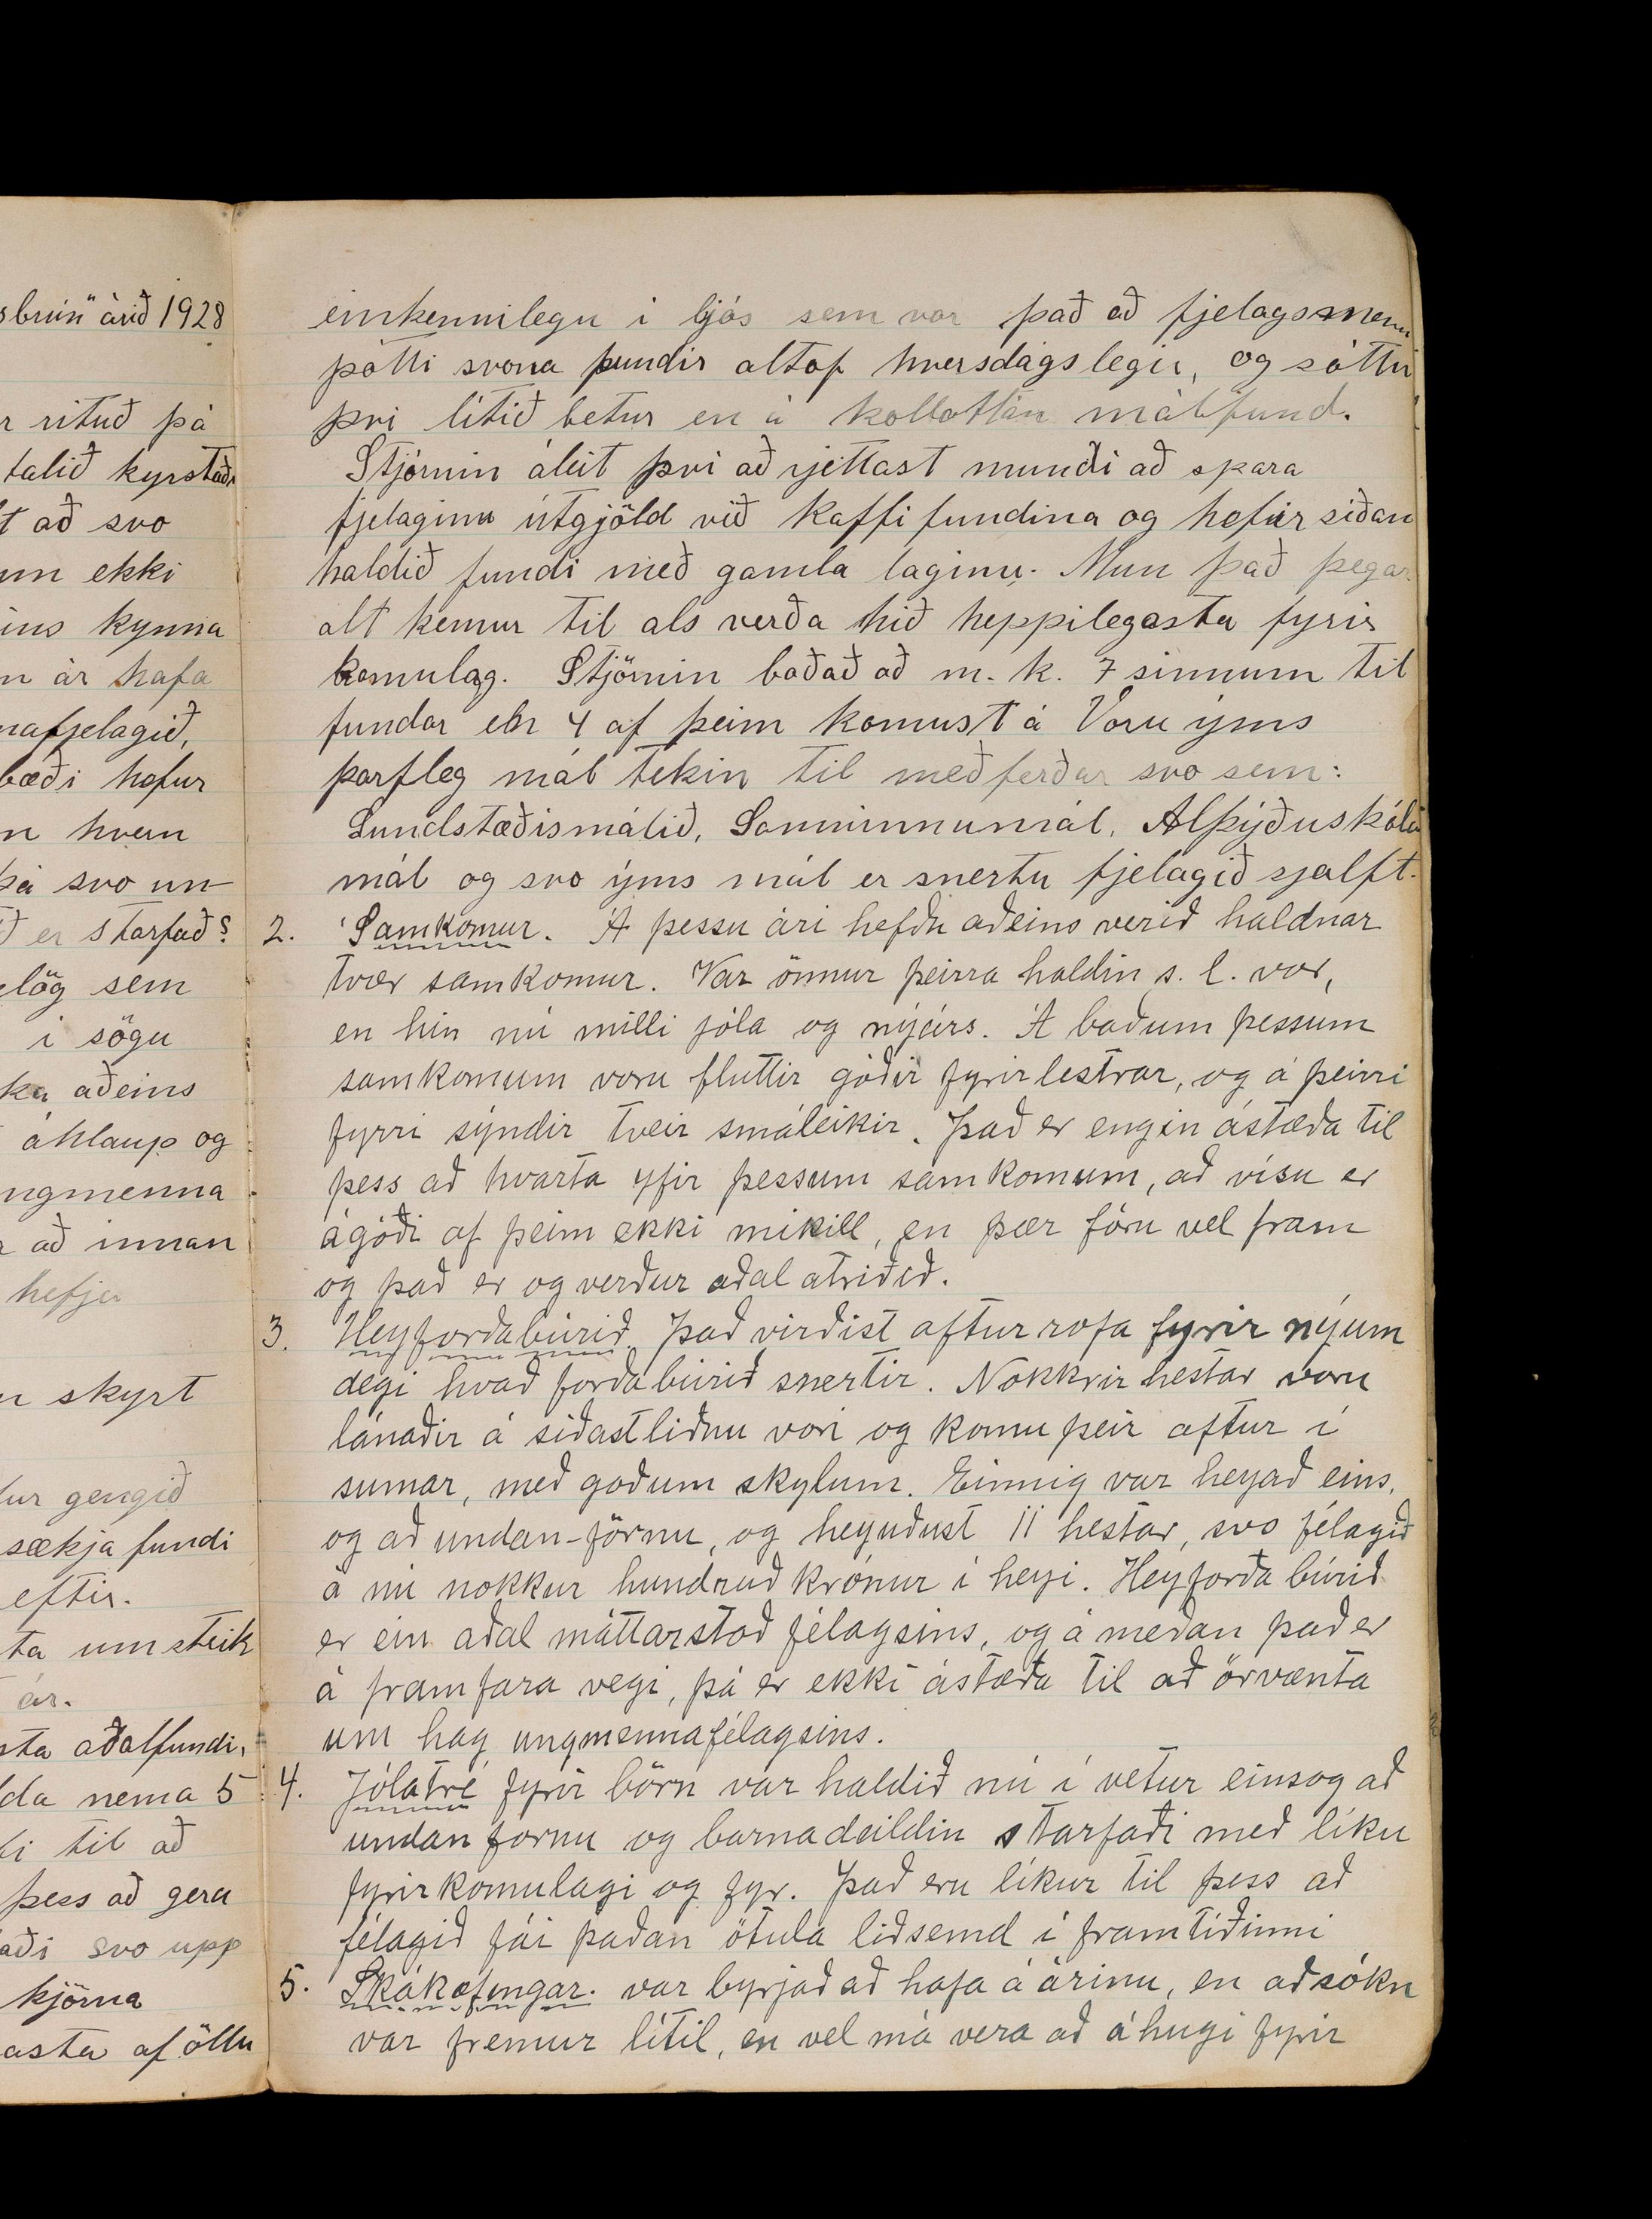 sbrún" árið 1928
r rituð þá
talið kyrstaða
t að svo
um ekki
ins kynna
n ár hafa
nafjelagið,
bæði hefur
n hvern
þá svo un-
ð er starfað?
elög sem
í sögu
ka aðeins
áhlaup og
ngmenna
að innan
hefja
skyrt
ur gengið
sækja fundi
eftir.
ta umsteik
ár.
sta aðalfundi,
da nema 5
ki til að
þess að gera
aði svo upp
kjörna
asta af öllu
einkennilegu í ljós sem var það að fjelagsmenn
þótti svona fundir altof hversdagslegir, og sóttu
þvi lítið betur en á kollóttan málfund.
Stjórnin áleit því að rjettast mundi að spara
fjelaginu útgjöld við kaffifundina og hefur síðan
haldið fundi með gamla laginu. Mun það þegar
alt kemur til als verða hið heppilegasta fyrir
komulag. Stjórnin boðað að m. k. 7 sinnum til
fundar en 4 af þeim komust á Voru ýms
þarfleg mál tekin til meðferðar svo sem:
Sundstæðismálið, Samvinnumál, Alþýðuskóla
mál og svo ýms mál er snertu fjelagið sjalft.
2. Samkomur. Á þessu ári hefðu aðeins verið haldnar
tvær samkomur. Var önnur þeirra haldin s. l. vor,
en hin nú milli jóla og nýjárs. Á baðum þessum
samkomum voru fluttir góðir fyrirlestrar, og á þeirri
fyrri sýndir tveir smáleikir. Það er engin ástæða til
þess að kvarta yfir þessum samkomum, að vísu er
ágóði af þeim ekki mikill, en þær fóru vel fram
og það er og verður aðal atriðið.
3. Heyforðabúrið. Það virðist aftur rofa fyrir nýum
degi hvað forðabúrið snertir. Nokkrir hestar voru
lánaðir á síðastliðnu vori og komu þeir aftur í
sumar, með goðum skylum. Einnig var heyað eins,
og að undan-förnu, og heyuðust 11 hestar, svo félagið
á nú nokkur hundruð krónur í heyi. Heyforða búrið
er ein aðal máttarstoð félagsins, og á meðan það er
á framfara vegi, þá er ekki ástæða til að örvænta
um hag ungmennafélagsins.
4. Jólatré fyrir börn var haldið nú í vetur einsog að
undan fornu og barnadeildin starfaði með líku
fyrirkomulagi og fyr. Það eru líkur til þess að
félagið fái þaðan ötula liðsemd í framtíðinni
5. Skákæfingar. var byrjað að hafa á árinu, en aðsókn
var fremur lítil, en vel má vera að áhugi fyrir